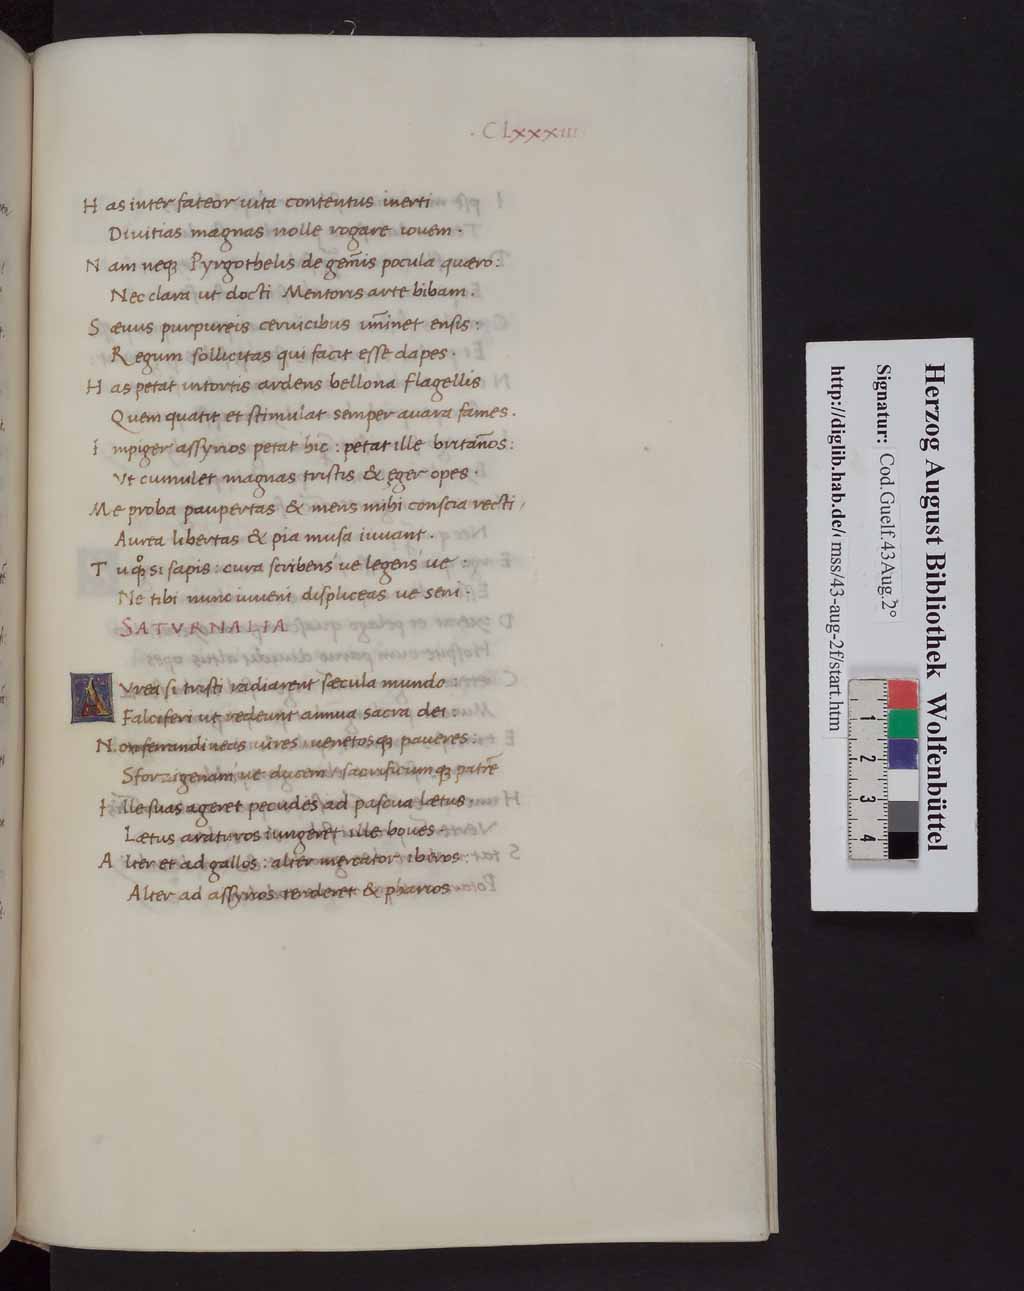 .CLxxxiii.
H as inter fateor uita contentus inerti
Diuitias magnas nolle rogare iouem.
N am neqꝫ Pyrgothelis de gem̄is pocula quæro:
Nec clara ut docti Mentoris arte bibam.
S æuus purpureis ceruicibus im̄inet ensis:
R egum sollicitas qui facit esse dapes.
H as petat intortis ardens bellona flagellis
Quem quatit et stimulat semper auara fames.
I mpiger assyrios petat hic: petat ille britan̄os:
Vt cumulet magnas tristis & ęger opes.
Me proba paupertas & mens mihi conscia recti,
Aurea libertas & pia musa iuuant.
T u qͦꝫ si sapis: cura scribens ue legens ue:
Ne tibi nunc iuueni displiceas ue seni.
SATVRNALIA
A Vrea si tristi radiarent sæcula mundo:
Falciferi ut redeunt annua sacra dei
N on ferrandineas uires uenetosqꝫ paueres:
Sforzigenam ue ducem: sacrificumqꝫ patrē
I lle suas ageret pecudes ad pascua lætus.
Lætus araturos iungeret ille boues.
A lter et ad gallos: alter mercator iberos:
Alter ad assyrios tenderet & pharios
Herzog August Bibliothek Wolfenbüttel
Signatur: Cod.Guelf.43 Aug.2°
http://diglib.hab.de/mss/43-aug-2f/start.htm
1
2
3
4